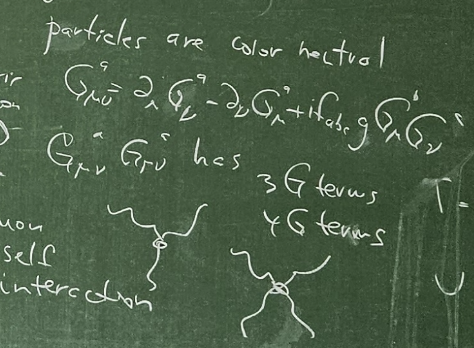 particles are color neutral
G^a_μν = ∂_μ G^a_ν - ∂_ν G^a_μ + i f_abc g G^b_μ G^c_ν
G^a_μν G^a_μν has
3 G terms
4 G terms
self
interaction